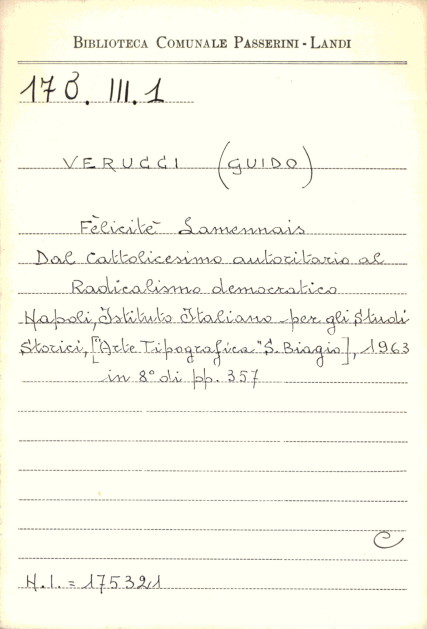 BIBLIOTECA COMUNALE PASSERINI - LANDI
170. III. 1
VERUCCI (GUIDO)
Fèlicitè Lamennais
Dal Cattolicesimo autoritario al
Radicalismo democratico
Napoli, Istituto Italiano per gli Studi
Storici, ["Arte Tipografica" S. Biagio], 1963
in 8° di pp. 357
C
N.I. = 175321